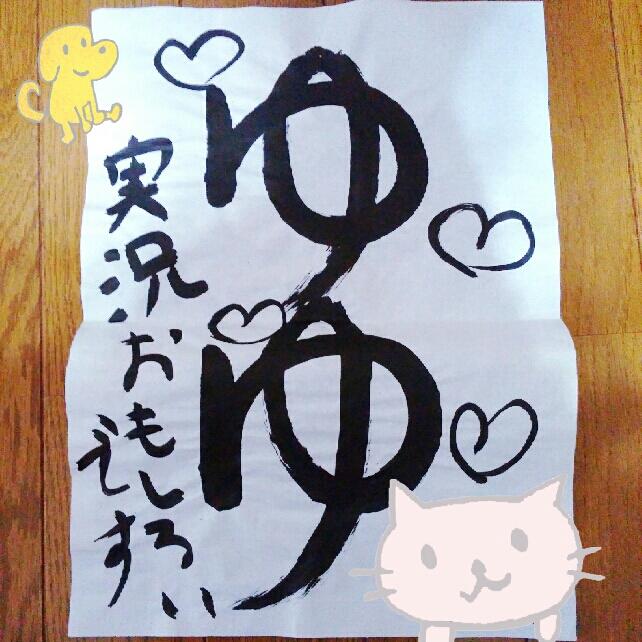 ゆゆ
実況おもしろい
どす